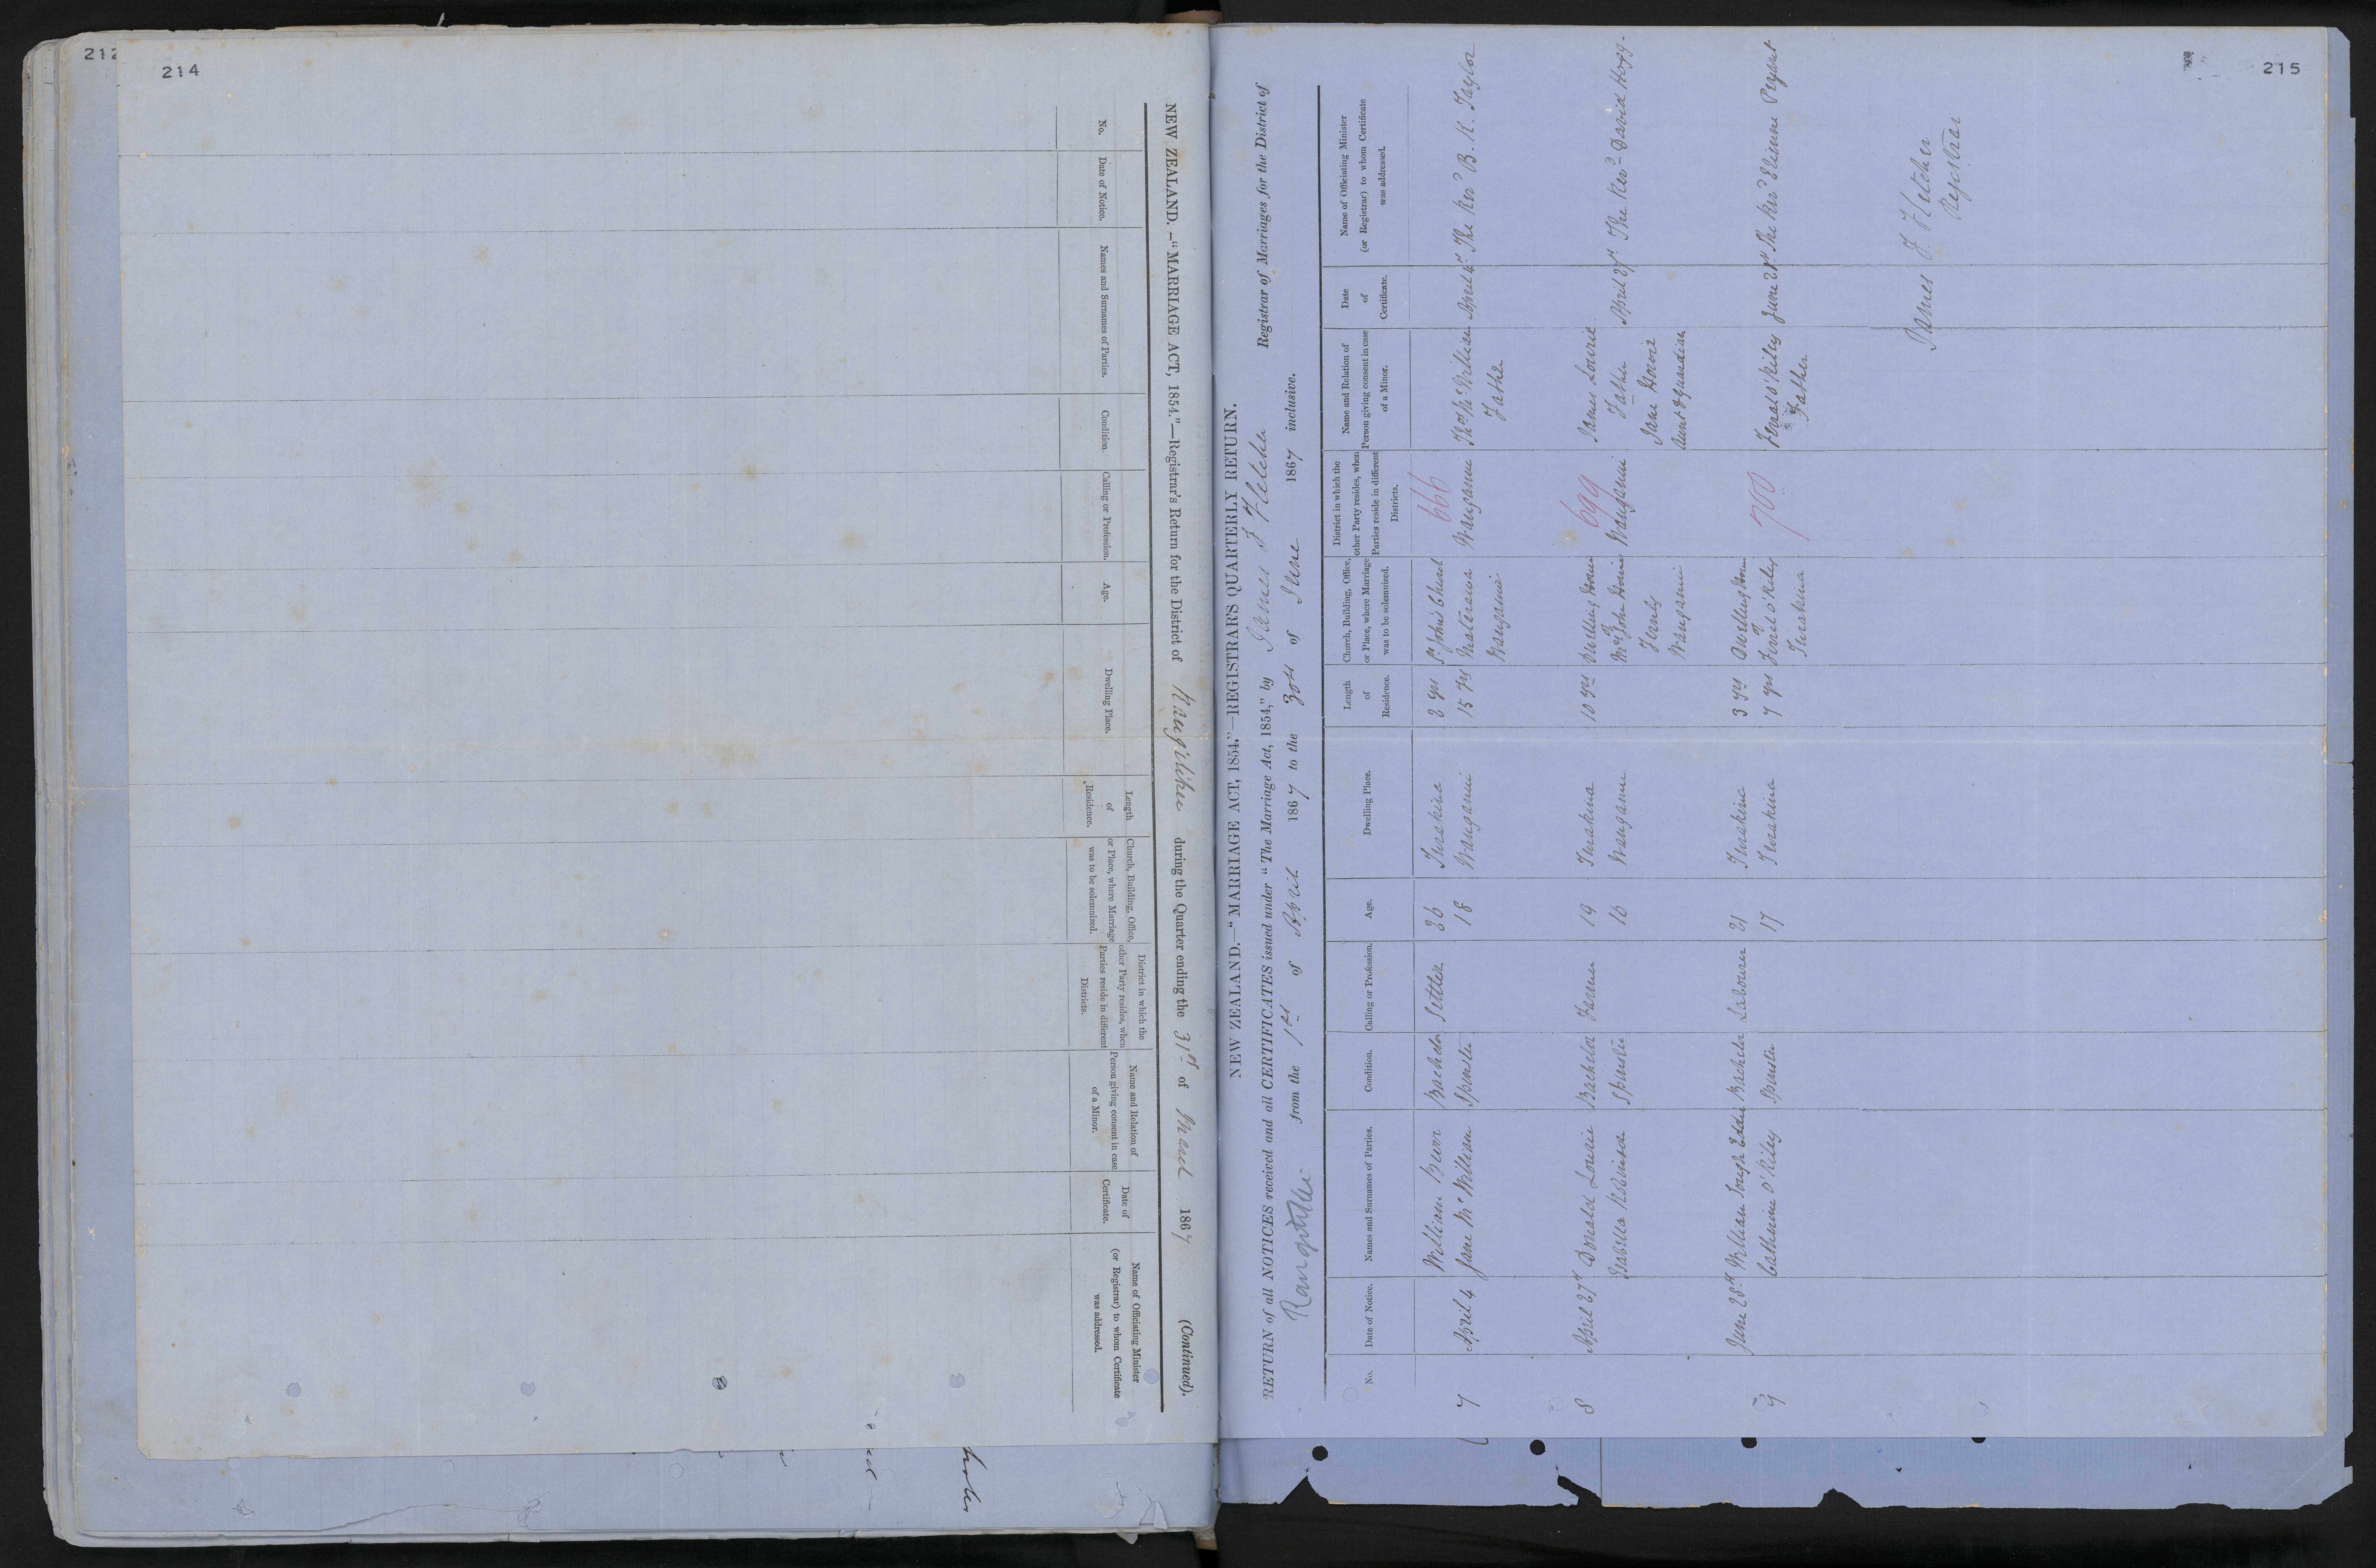 212
214
NEW ZEALAND.—"MARRIAGE ACT, 1854."—Registrar's Return for the District of Rangitikei during the Quarter ending the 31st of March 1867 (Continued).
No.
Date of Notice.
Names and Surnames of Parties.
Condition.
Calling or Profession.
Age.
Dwelling Place.
Length
of
Residence.
Church, Building, Office,
or Place, where Marriage
was to be solemnized.
District in which the
other Party resides, when
Parties reside in different
Districts.
Name and Relation of
Person giving consent in case
of a Minor.
Date of
Certificate.
Name of Officiating Minister
(or Registrar) to whom Certificate
was addressed.
215
NEW ZEALAND.—"MARRIAGE ACT, 1854."—REGISTRAR'S QUARTERLY RETURN.
RETURN of all NOTICES received and all CERTIFICATES issued under "The Marriage Act, 1854," by James F Fletcher Registrar of Marriages for the District of
Rangitikei from the 1st of April 1867 to the 30th of June 1867 inclusive.
No.
Date of Notice.
Names and Surnames of Parties.
Condition.
Calling or Profession.
Age.
Dwelling Place.
Length
of
Residence.
Church, Building, Office,
or Place, where Marriage
was to be solemnized.
District in which the
other Party resides, when
Parties reside in different
Districts.
Name and Relation of
Person giving consent in case
of a Minor.
Date
of
Certificate.
Name of Officiating Minister
(or Registrar) to whom Certificate
was addressed.
William Bachelor Settler 26 Turakina 2 yrs St John's Church 666
7 April 4 Jane McWilliam Spinster 18 Wanganui 15 yrs Matarawa Wanganui Thos McWilliam April 4th The Revd B. K. Taylor
Wanganui Father
8 April 27th Donald Lourie Bachelor Farmer 19 Turakina 10 yrs Dwelling House 699 James Lourie
Isabella Robinson Spinster 16 Wanganui Mr John Wanganui Father April 27th The Revd David Hogg.
Jane
Wanganui Aunt & Guardian
June 28th William Bachelor Labourer 21 Turakina 3 yrs Dwelling House 700
9 Catherine O'Riley Spinster 17 Turakina 7 yrs O'Riley O'Riley June 28th The Revd
Turakina Father
James F. Fletcher
Registrar